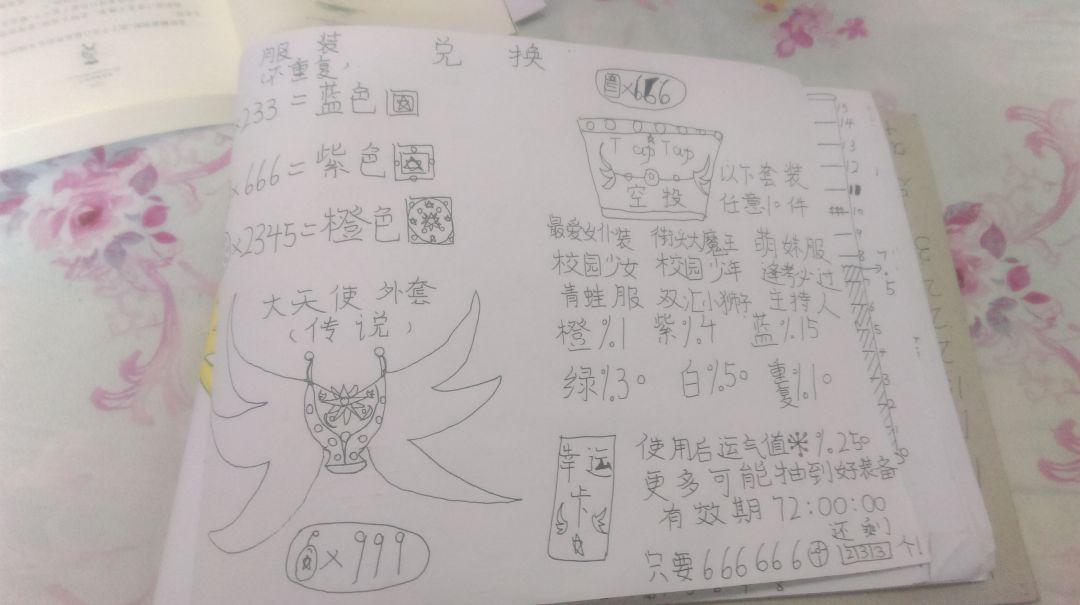 服装
(不重复)
兑换
×233=蓝色
×666=紫色
×2345=橙色
大天使外套
(传说)
×999
×666
T cup T cup
空投
以下套装
任意10件
最爱女仆装 街头大魔王 萌妹服
校园少女 校园少年 逢考必过
青蛙服 双汇小狮子 主持人
橙%1 紫%4 蓝%15
绿%30 白%50 重复%10
幸运卡
使用后运气值※%250
更多可能抽到好装备
有效期72:00:00
还剩
只要666666 2313个!
15
14
13
12
11
10
9
8
7.5